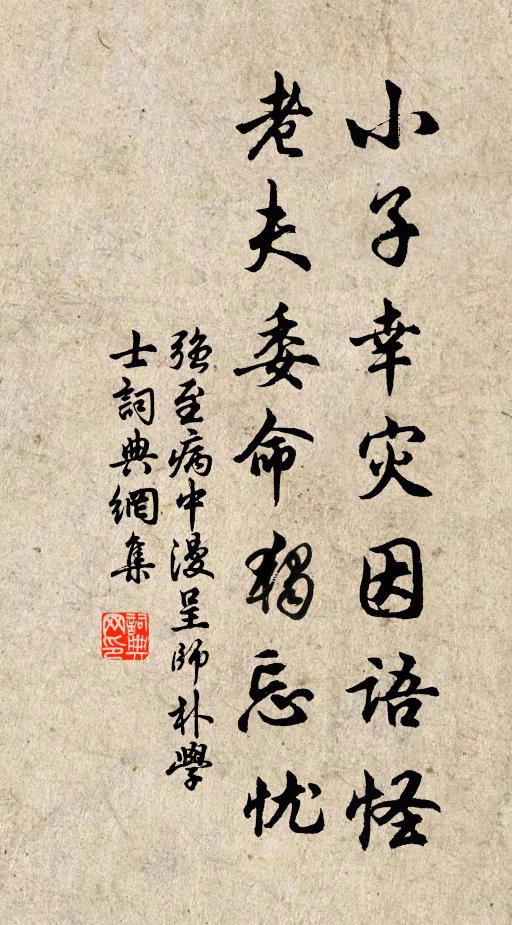 小子幸灾因语怪
老夫委命独忘忧
强至病中漫呈师朴學
士詞典網集
詞典网印